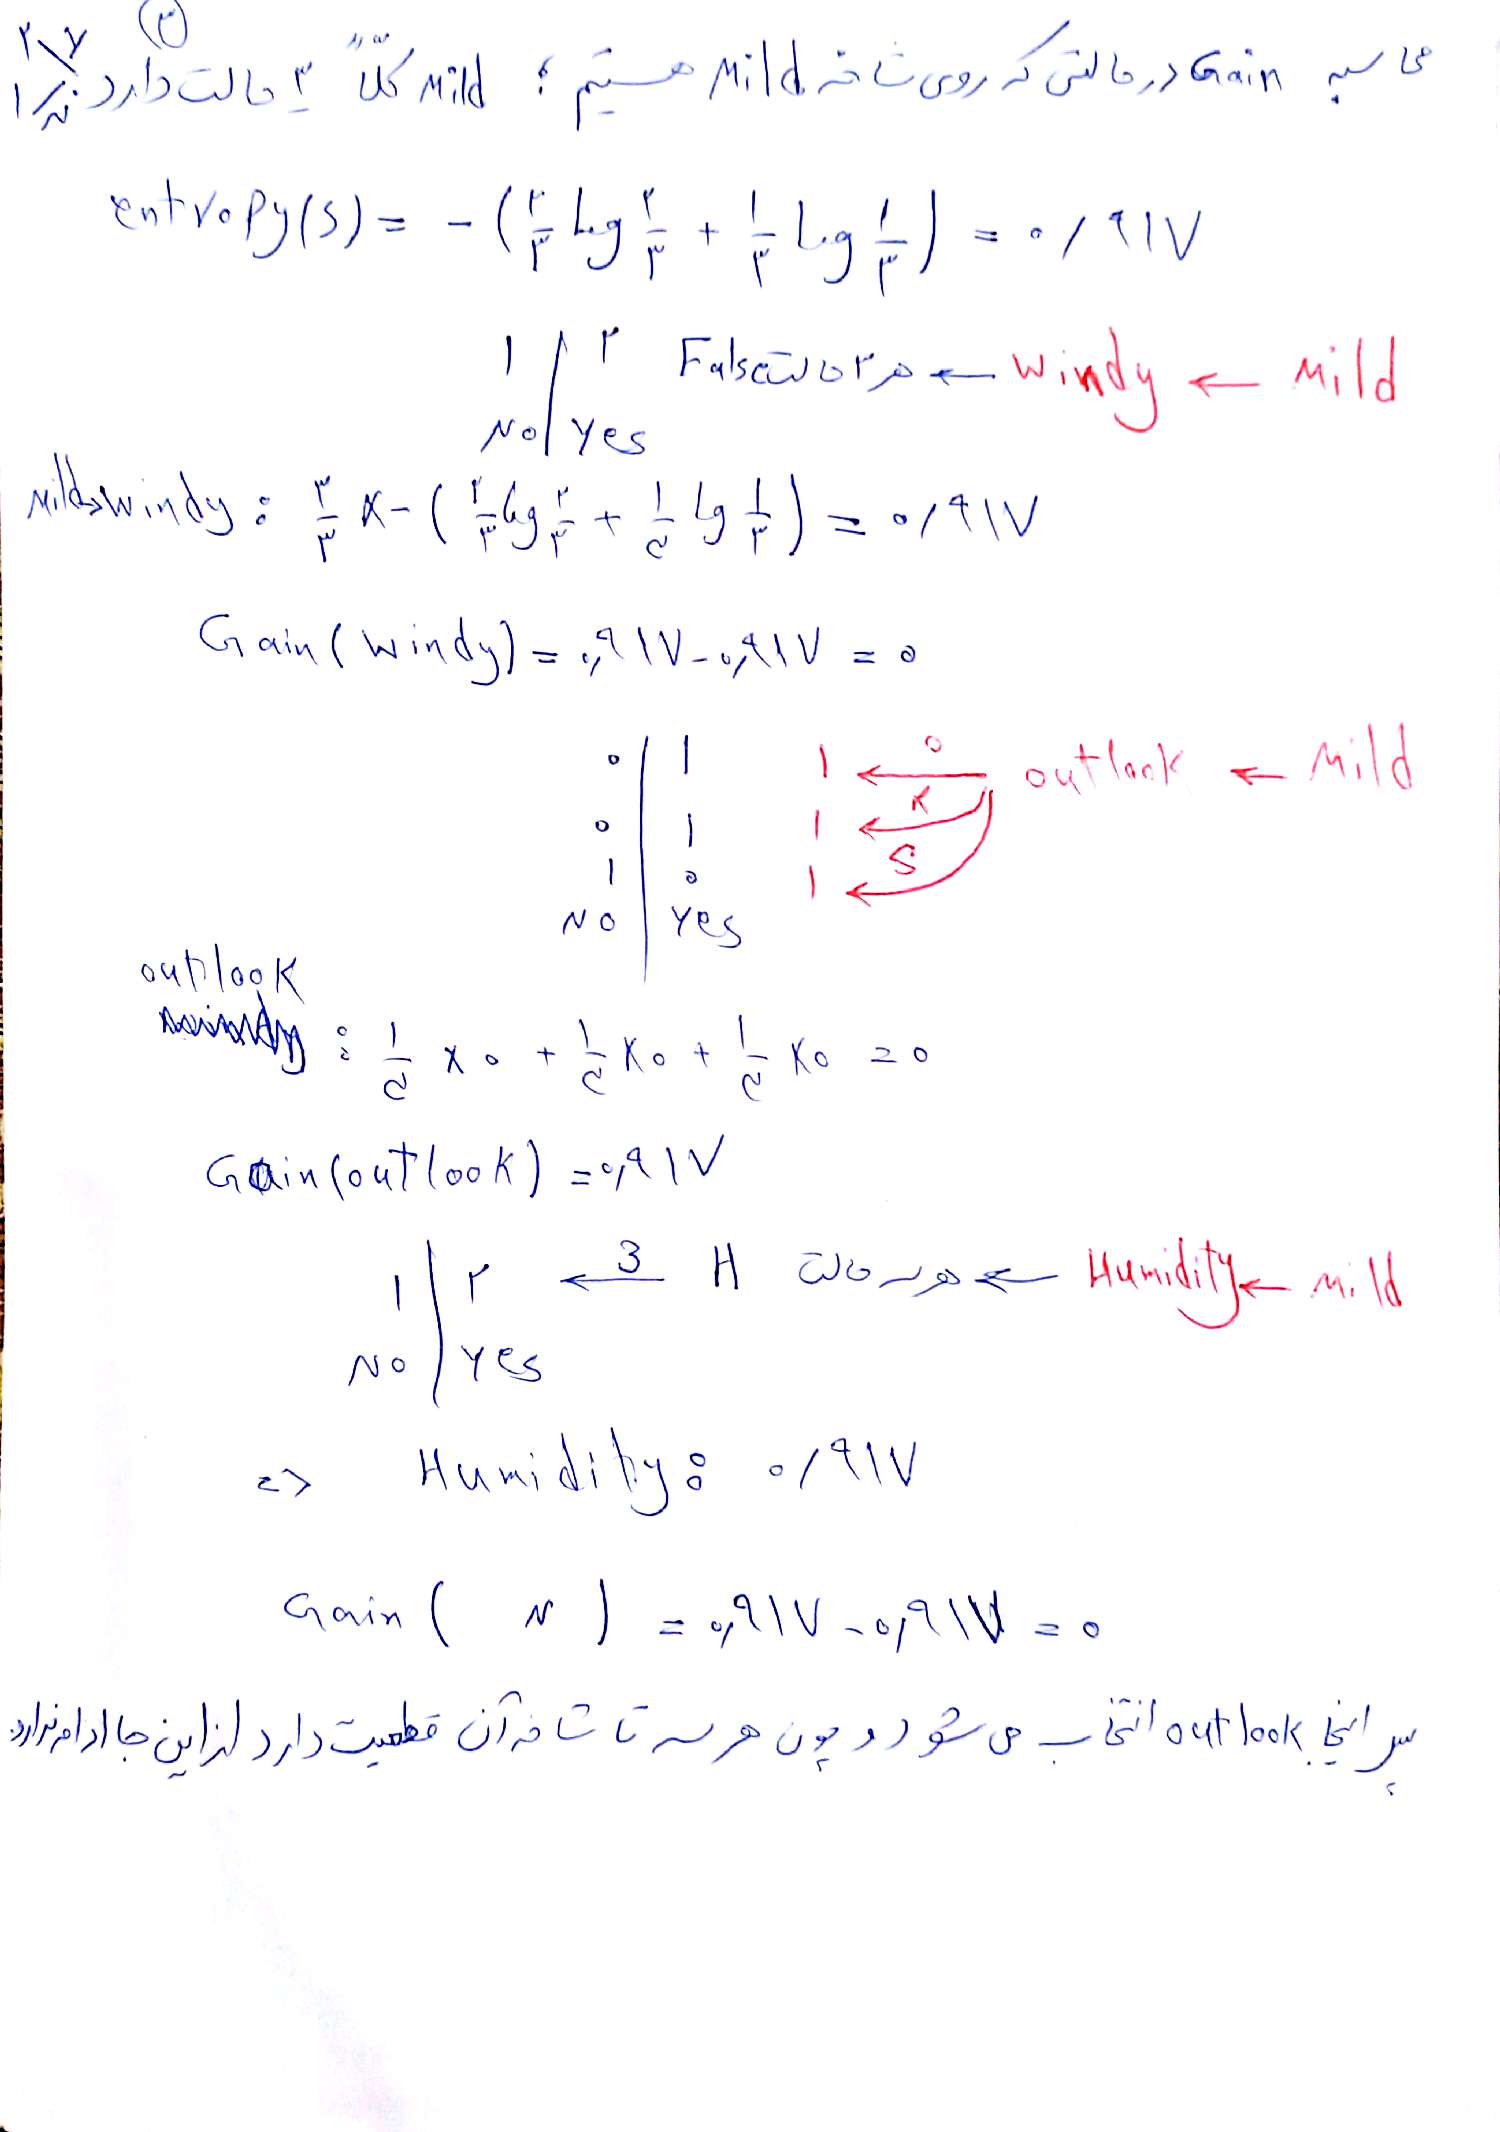 (۳)
محاسبه Gain در حالتی که روی شاخه Mild هستیم ؛ Mild کلاً ۳ حالت دارد ۲ بله ۱ نه
entropy(S) = - (۲/۳ log ۲/۳ + ۱/۳ log ۱/۳) = ۰/۹۱۷
Mild ← windy ← هر ۳ حالت False ۲ | ۱
No | Yes
Mild → windy : ۳/۳ × - (۲/۳ log ۲/۳ + ۱/۳ log ۱/۳) = ۰/۹۱۷
Gain(windy) = ۰,۹۱۷ - ۰,۹۱۷ = ۰
Mild ← outlook
O ← ۱ ۰ | ۱
R ← ۱ ۰ | ۱
S ← ۱ ۱ | ۰
NO | Yes
outlook : ۱/۳ × ۰ + ۱/۳ × ۰ + ۱/۳ × ۰ = ۰
Gain(outlook) = ۰,۹۱۷
Mild ← Humidity ← هر سه حالت H ←3 ۱ | ۲
NO | Yes
=> Humidity : ۰/۹۱۷
Gain( ) = ۰,۹۱۷ - ۰,۹۱۷ = ۰
پس اینجا outlook انتخاب می شود و چون هر سه تا شاخه آن قطعیت دارد لذا این جا ادامه ندارد